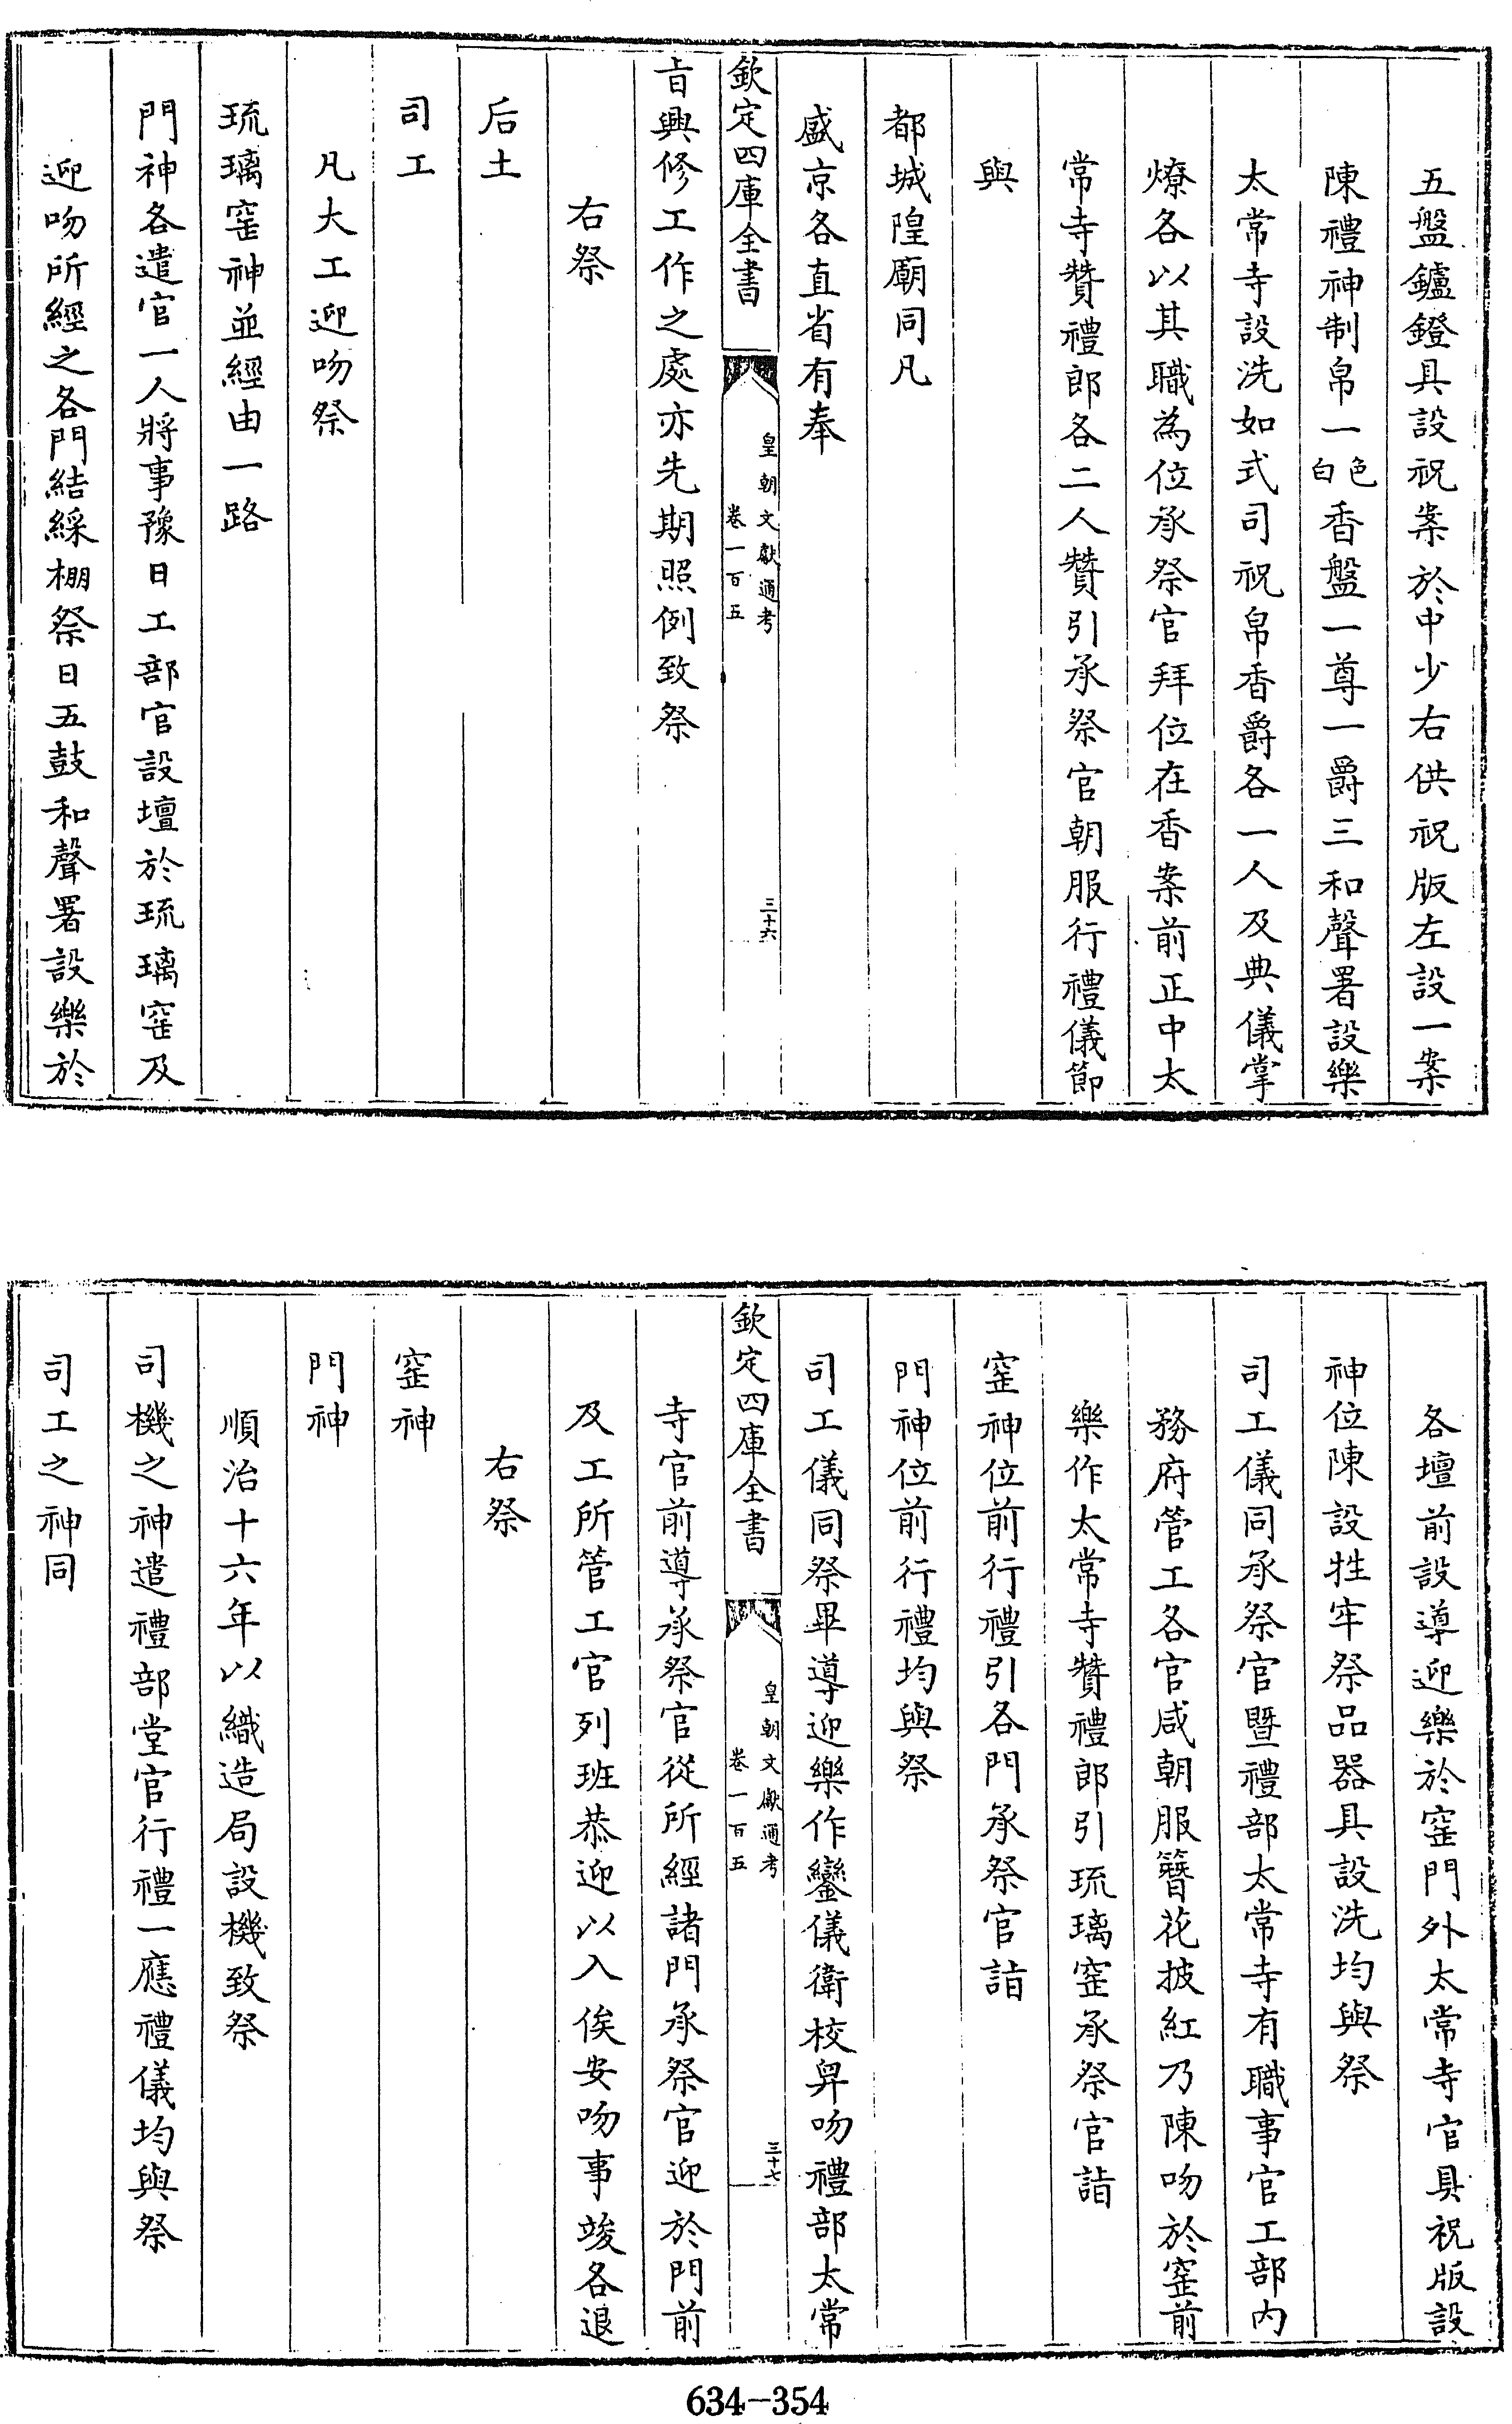 五盤鑪鐙具設祝案於中少右供祝版左設一案
陳禮神制帛一色白香盤一尊一爵三和聲署設樂
太常寺設洗如式司祝帛香爵各一人及典儀掌
燎各以其職為位承祭官拜位在香案前正中太
常寺贊禮郎各二人贊引承祭官朝服行禮儀節
與
都城隍廟同凡
盛京各直省有奉
欽定四庫全書
皇朝文獻通考
卷一百五
三十六
旨興修工作之處亦先期照例致祭
右祭
后土
司工
凡大工迎吻祭
琉璃窰神並經由一路
門神各遣官一人將事豫日工部官設壇於琉璃窰及
迎吻所經之各門結綵棚祭日五鼓和聲署設樂於
各壇前設導迎樂於窰門外太常寺官具祝版設
神位陳設牲牢祭品器具設洗均與祭
司工儀同承祭官暨禮部太常寺有職事官工部內
務府管工各官咸朝服簪花披紅乃陳吻於窰前
樂作太常寺贊禮郎引琉璃窰承祭官詣
窰神位前行禮引各門承祭官詣
門神位前行禮均與祭
司工儀同祭畢導迎樂作鑾儀衛校舁吻禮部太常
欽定四庫全書
皇朝文獻通考
卷一百五
三十七
寺官前導承祭官從所經諸門承祭官迎於門前
及工所管工官列班恭迎以入俟安吻事竣各退
右祭
窰神
門神
順治十六年以織造局設機致祭
司機之神遣禮部堂官行禮一應禮儀均與祭
司工之神同
634-354